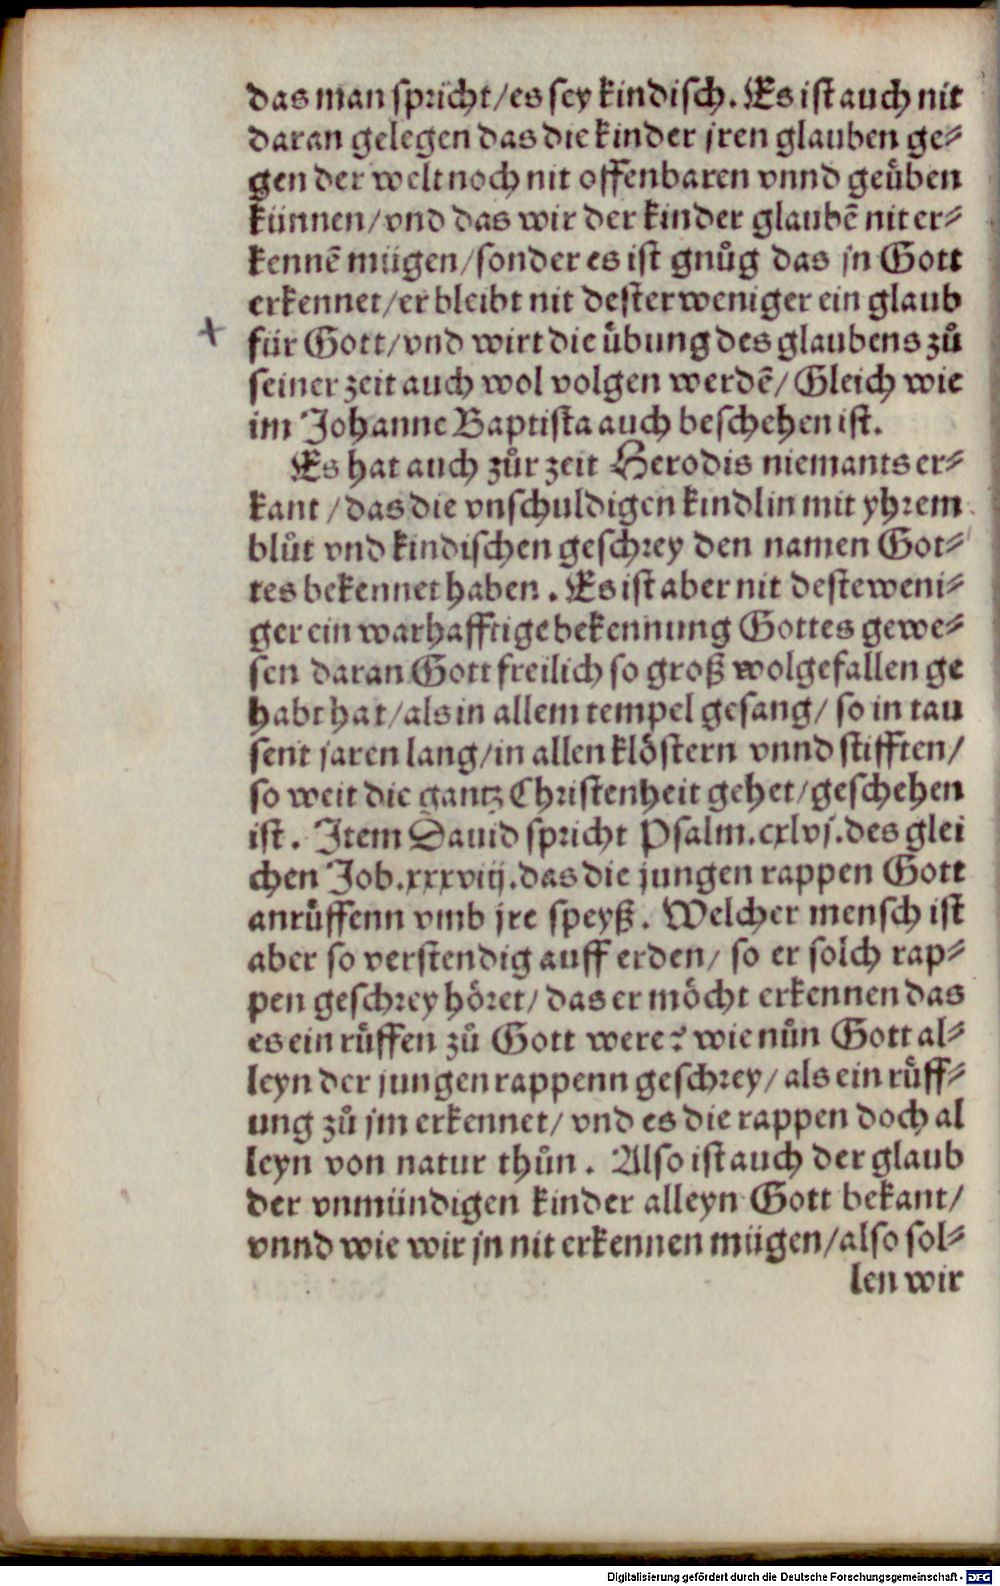 das man spricht/es sey kindisch. Es ist auch nit
daran gelegen das die kinder jren glauben ge⸗
gen der welt noch nit offenbaren vnnd geuͤben
künnen/vnd das wir der kinder glaubẽ nit er⸗
kennẽ mügen/sonder es ist gnuͦg das jn Gott
erkennet/er bleibt nit dester weniger ein glaub
für Gott/vnd wirt die uͤbung des glaubens zuͦ
seiner zeit auch wol volgen werdẽ/Gleich wie
im Johanne Baptista auch beschehen ist.
Es hat auch zuͦr zeit Herodis niemants er⸗
kant/das die vnschuldigen kindlin mit yhrem
bluͦt vnd kindischen geschrey den namen Got⸗
tes bekennet haben. Es ist aber nit deste weni⸗
ger ein warhafftige bekennung Gottes gewe⸗
sen daran Gott freilich so groß wolgefallen ge
habt hat/als in allem tempel gesang/so in tau
sent jaren lang/in allen kloͤstern vnnd stifften/
so weit die gantz Christenheit gehet/geschehen
ist. Item Dauid spricht Psalm.cxlvj.des glei
chen Job.xxxviij.das die jungen rappen Gott
anruͤffenn vmb jre speyß. Welcher mensch ist
aber so verstendig auff erden/so er solch rap⸗
pen geschrey hoͤret/das er moͤcht erkennen das
es ein ruͤffen zuͦ Gott were? wie nuͦn Gott al⸗
leyn der jungen rappenn geschrey/als ein ruͤff⸗
ung zuͦ jm erkennet/vnd es die rappen doch al
leyn von natur thuͦn. Also ist auch der glaub
der vnmündigen kinder alleyn Gott bekant/
vnnd wie wir jn nit erkennen mügen/also sol⸗
len wir
Digitalisierung gefördert durch die Deutsche Forschungsgemeinschaft - DFG